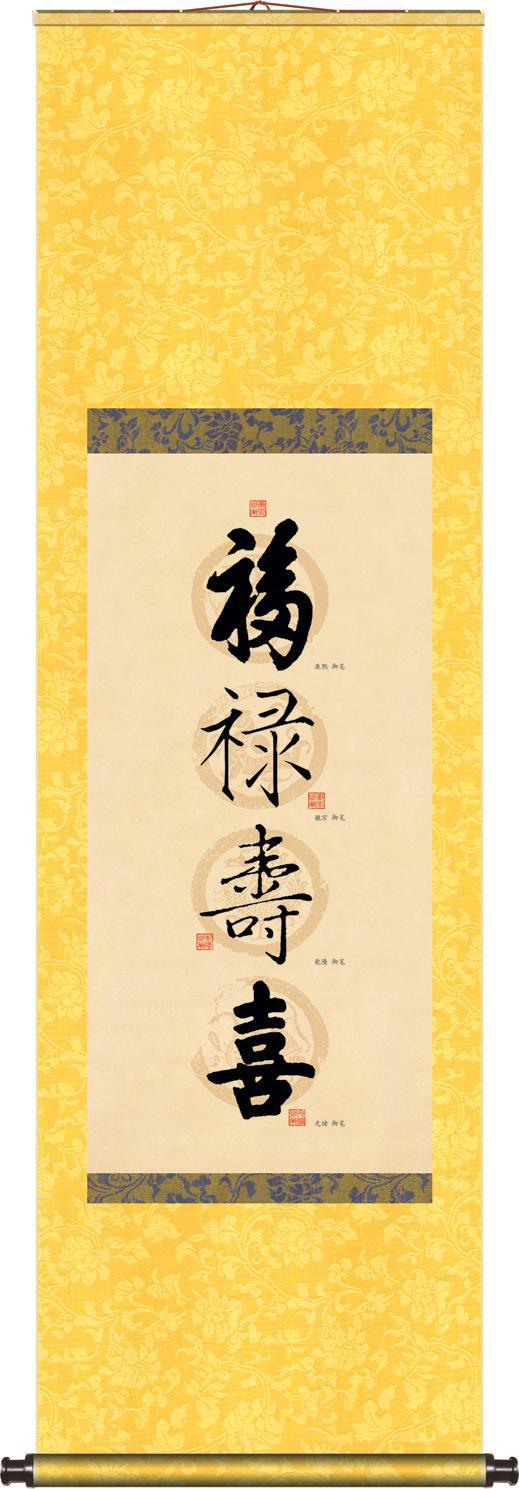 福
康熙 御笔
禄
徽宗 御笔
壽
乾隆 御笔
喜
光绪 御笔